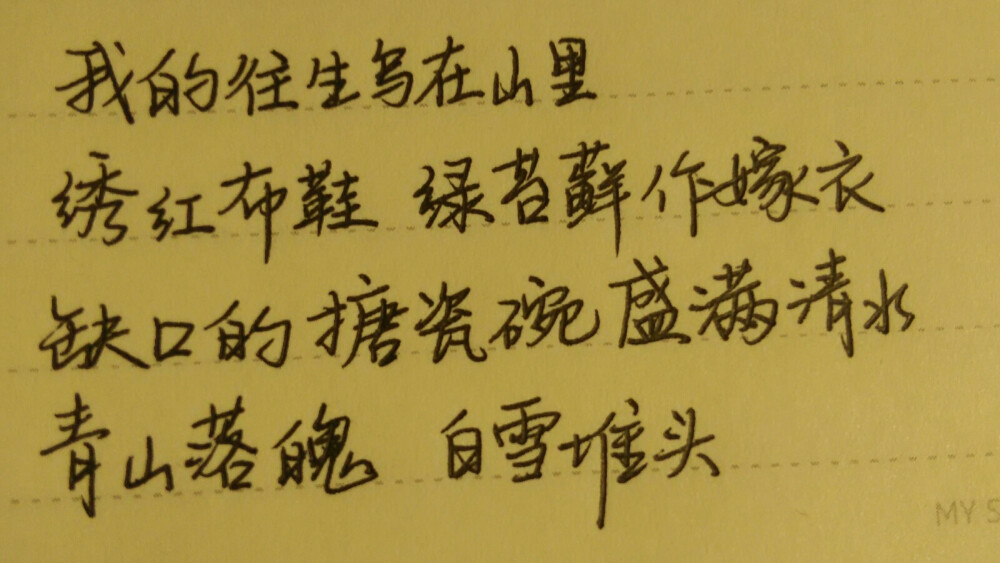 我的往生写在山里
绣红布鞋 绿苔藓作嫁衣
缺口的搪瓷碗盛满清水
青山落魄 白雪堆头
MY S